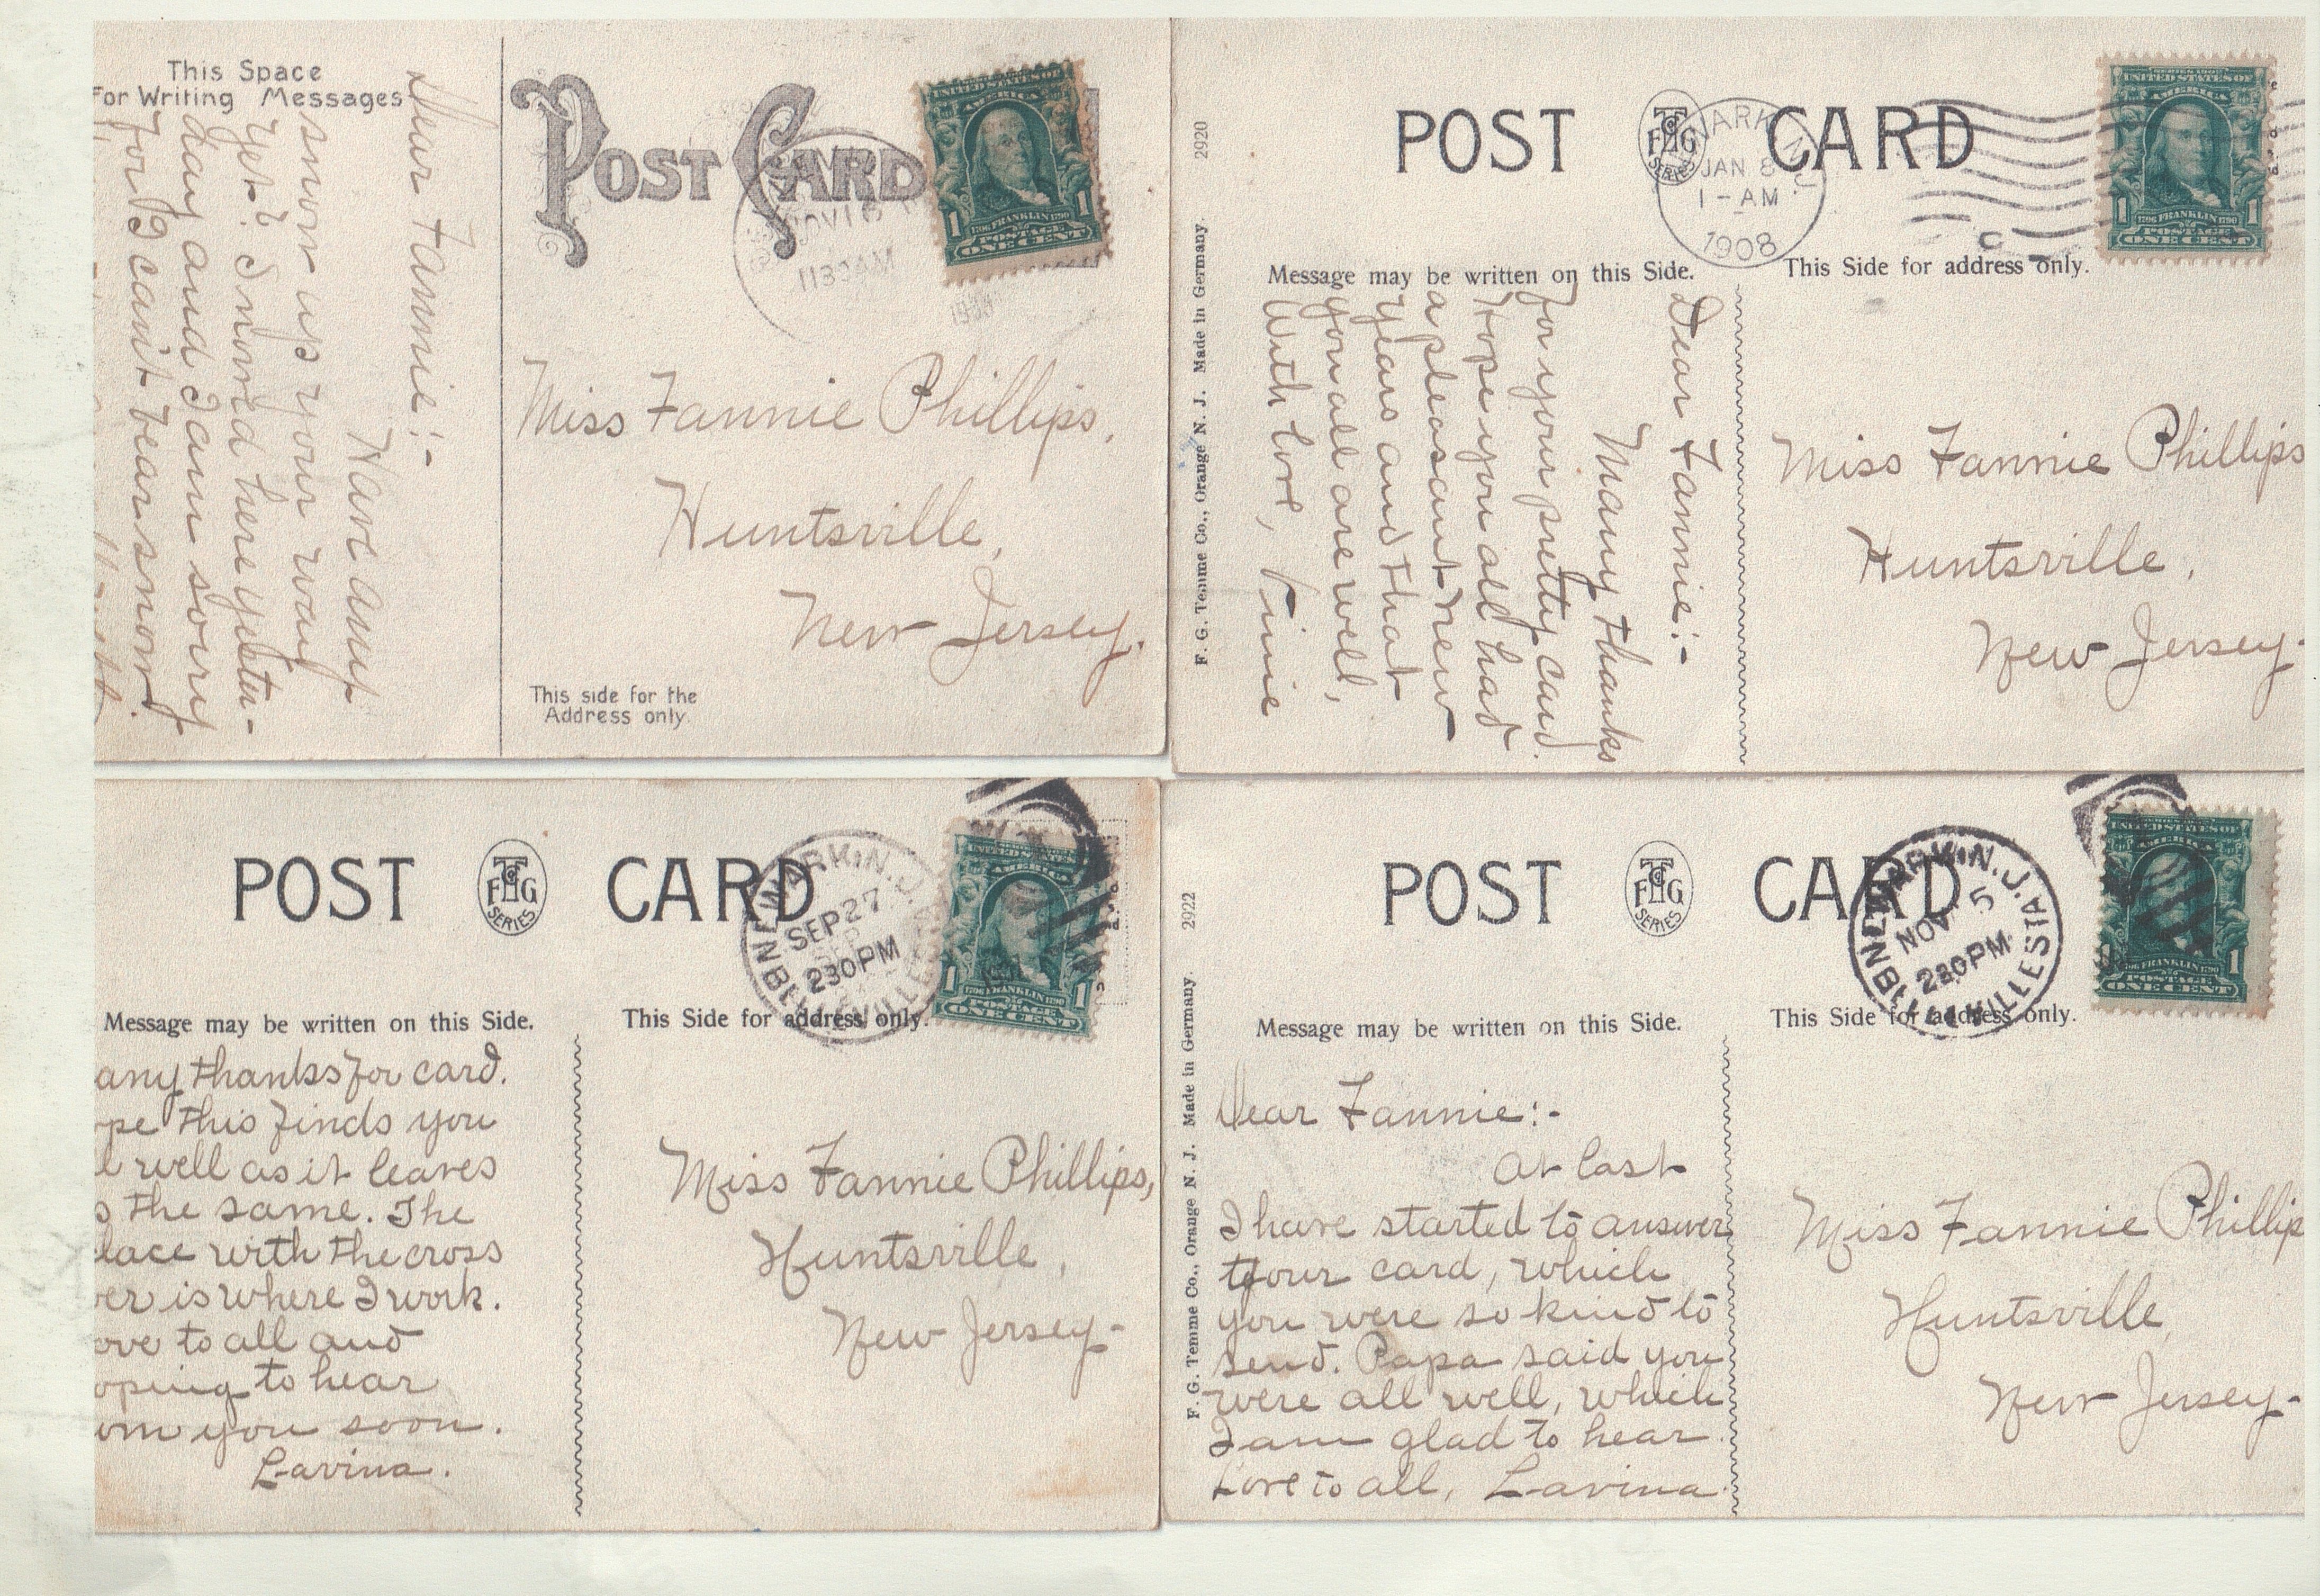 This Space
For Writing Messages
Dear Fannie:-
Have any
snow up your way
yet? I snowed here yester-
day and I am sorry
for I can't bear snow.
POST CARD
NOV 18
1130AM
SERIES 1902
UNITED STATES OF
AMERICA
1 1
1706 FRANKLIN 1790
POSTAGE
ONE CENT
Miss Fannie Phillips,
Huntsville,
New Jersey.
This side for the
Address only.
2920
F. G. Temme Co., Orange N. J. Made in Germany.
POST CARD
F T Co G
SERIES
NEWARK, N.J.
JAN 8
1-AM
1908
C
SERIES 1902
UNITED STATES OF
AMERICA
1 1
1706 FRANKLIN 1790
POSTAGE
ONE CENT
Message may be written on this Side.
This Side for address only.
Dear Fannie:-
Many thanks
for your pretty card.
Hope you all had
a pleasant New
Years and that
you all are well,
With love, Vinie
Miss Fannie Phillips
Huntsville,
New Jersey-
POST CARD
F T Co G
SERIES
NEWARK, N.J.
SEP 27
230PM
BELLEVILLE STA.
UNITED STATES OF
AMERICA
1 1
1706 FRANKLIN 1790
POSTAGE
ONE CENT
Message may be written on this Side.
This Side for address only.
any thanks for card.
pe this finds you
l well as it leaves
s the same. The
lace with the cross
ver is where I work.
ove to all and
oping to hear
om you soon.
Lavina.
Miss Fannie Phillips,
Huntsville,
New Jersey-
2922
F. G. Temme Co., Orange N. J. Made in Germany.
POST CARD
F T Co G
SERIES
NEWARK, N.J.
NOV 5
230PM
BELLEVILLE STA.
UNITED STATES OF
AMERICA
1706 FRANKLIN 1790
1
POSTAGE
ONE CENT
Message may be written on this Side.
This Side for address only.
Dear Fannie:-
At last
I have started to answer
your card, which
you were so kind to
send. Papa said you
were all well, which
I am glad to hear.
Love to all, Lavina.
Miss Fannie Phillip
Huntsville,
New Jersey-